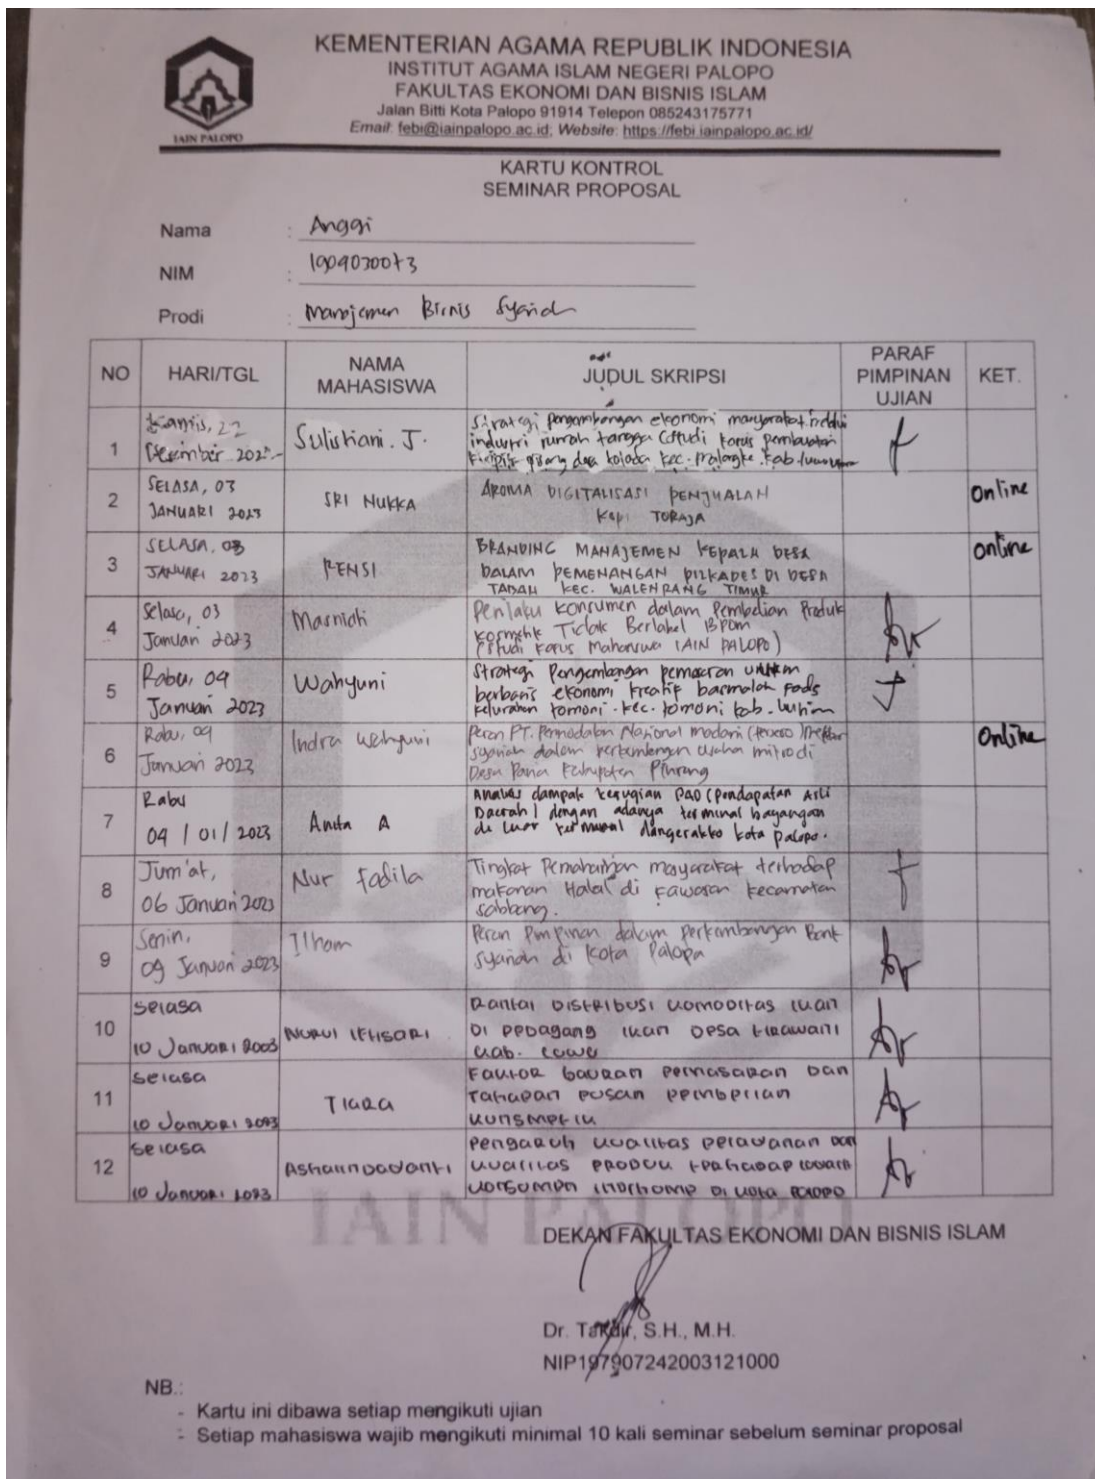 KEMENTERIAN AGAMA REPUBLIK INDONESIA
INSTITUT AGAMA ISLAM NEGERI PALOPO
FAKULTAS EKONOMI DAN BISNIS ISLAM
Jalan Bitti Kota Palopo 91914 Telepon 085243175771
Email: febi@iainpalopo.ac.id; Website: https://febi.iainpalopo.ac.id/
IAIN PALOPO
KARTU KONTROL
SEMINAR PROPOSAL
Nama : Anggi
NIM : 1904030073
Prodi : Manajemen Bisnis Syariah
NO HARI/TGL NAMA MAHASISWA JUDUL SKRIPSI PARAF PIMPINAN UJIAN KET.
1 Kamis, 22 Desember 2022 Sulistiani. J.
Strategi pengembangan ekonomi masyarakat melalui
industri rumah tangga (studi kasus pembuatan
keripik pisang desa kec. Malangke kab.
2 SELASA, 03 JANUARI 2023 SRI NUKKA
AROMA DIGITALISASI PENJUALAN
KOPI TORAJA
Online
3 SELASA, 03 JANUARI 2023 RENSI
BRANDING MANAJEMEN KEPALA DESA
DALAM PEMENANGAN PILKADES DI DESA
TABAH KEC. WALENRANG TIMUR
Online
4 Selasa, 03 Januari 2023 Masnidi
Perilaku konsumen dalam Pembelian Produk
kosmetik Tidak Berlabel BPOM
(Studi Kasus Mahasiswa IAIN PALOPO)
5 Rabu, 04 Januari 2023 Wahyuni
Strategi Pengembangan pemasaran UMKM
berbasis ekonomi kreatif basmalah
kelurahan tomoni. kec. tomoni kab. lutim
6 Rabu, 04 Januari 2023 Indra Wahyuni
Peran PT. Permodalan Nasional madani (persero) Mekar
syariah dalam perkembangan usaha mitra di
Desa Kabupaten Pinrang
Online
7 Rabu 04 / 01 / 2023 Anita A
Analisis dampak kerugian PAD (Pendapatan Asli
Daerah) dengan adanya terminal bayangan
di luar terminal dangerakko kota palopo.
8 Jum'at, 06 Januari 2023 Nur Fadila
Tingkat Pemahaman masyarakat terhadap
makanan Halal di kawasan kecamatan
sabbang.
9 Senin, 09 Januari 2023 Ilham
Peran Pimpinan dalam perkembangan Bank
syariah di Kota Palopo
10 Selasa 10 Januari 2003 NURUL IKHSARI
Rantai Distribusi komoditas ikan
Di pedagang ikan Desa
kab. Luwu
11 Selasa 10 Januari 2023 TIARA
Faktor bauran pemasaran dan
Tahapan
12 Selasa 10 Januari 2023
Pengaruh kualitas pelayanan dan
kualitas produk terhadap
konsumen di kota palopo
IAIN PALOPO
DEKAN FAKULTAS EKONOMI DAN BISNIS ISLAM
Dr. Takdir, S.H., M.H.
NIP197907242003121000
NB.:
- Kartu ini dibawa setiap mengikuti ujian
- Setiap mahasiswa wajib mengikuti minimal 10 kali seminar sebelum seminar proposal